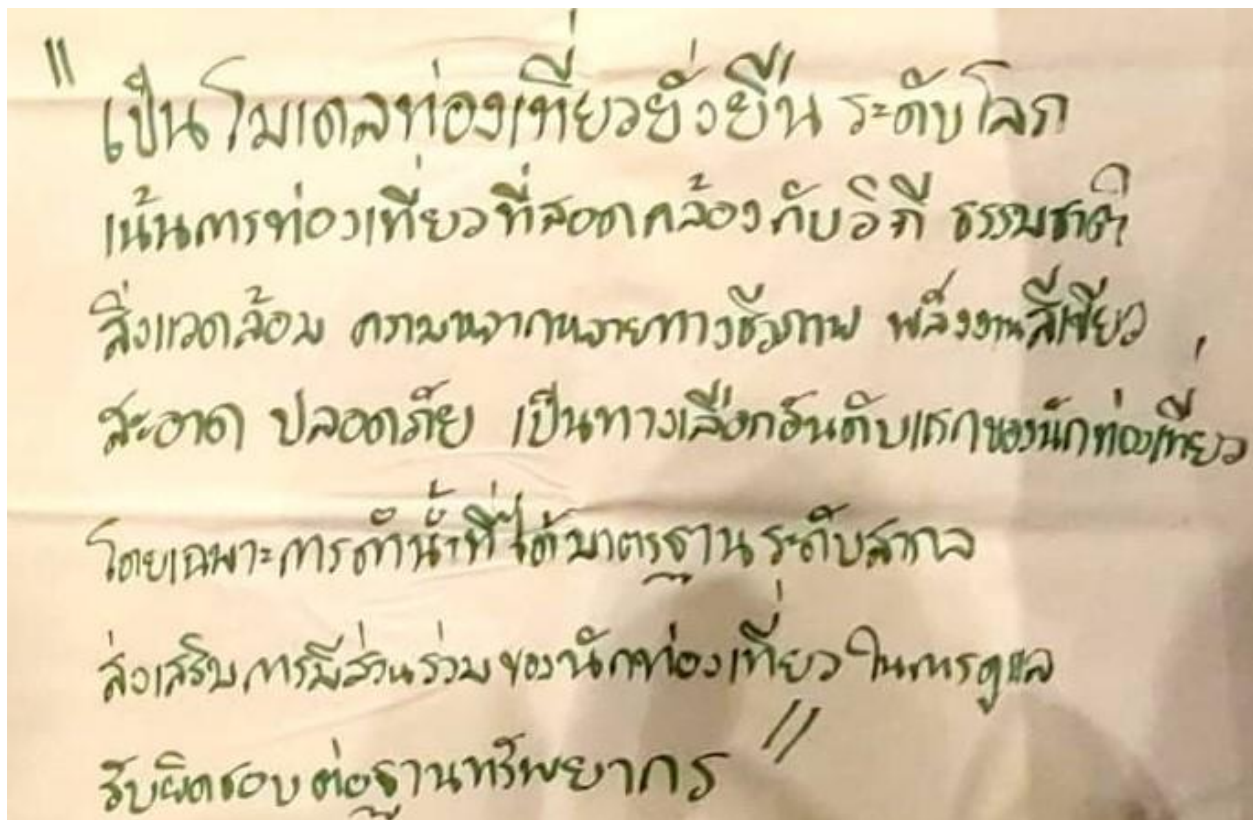 "เป็นโมเดลท่องเที่ยวยั่งยืน ระดับโลก
เน้นการท่องเที่ยวที่สอดคล้องกับวิถี ธรรมชาติ
สิ่งแวดล้อม ความหลากหลายทางชีวภาพ พลังงานสีเขียว
สะอาด ปลอดภัย เป็นทางเลือกอันดับแรกของนักท่องเที่ยว
โดยเฉพาะการดำน้ำที่ได้มาตรฐานระดับสากล
ส่งเสริมการมีส่วนร่วมของนักท่องเที่ยวในการดูแล
รับผิดชอบต่อฐานทรัพยากร"